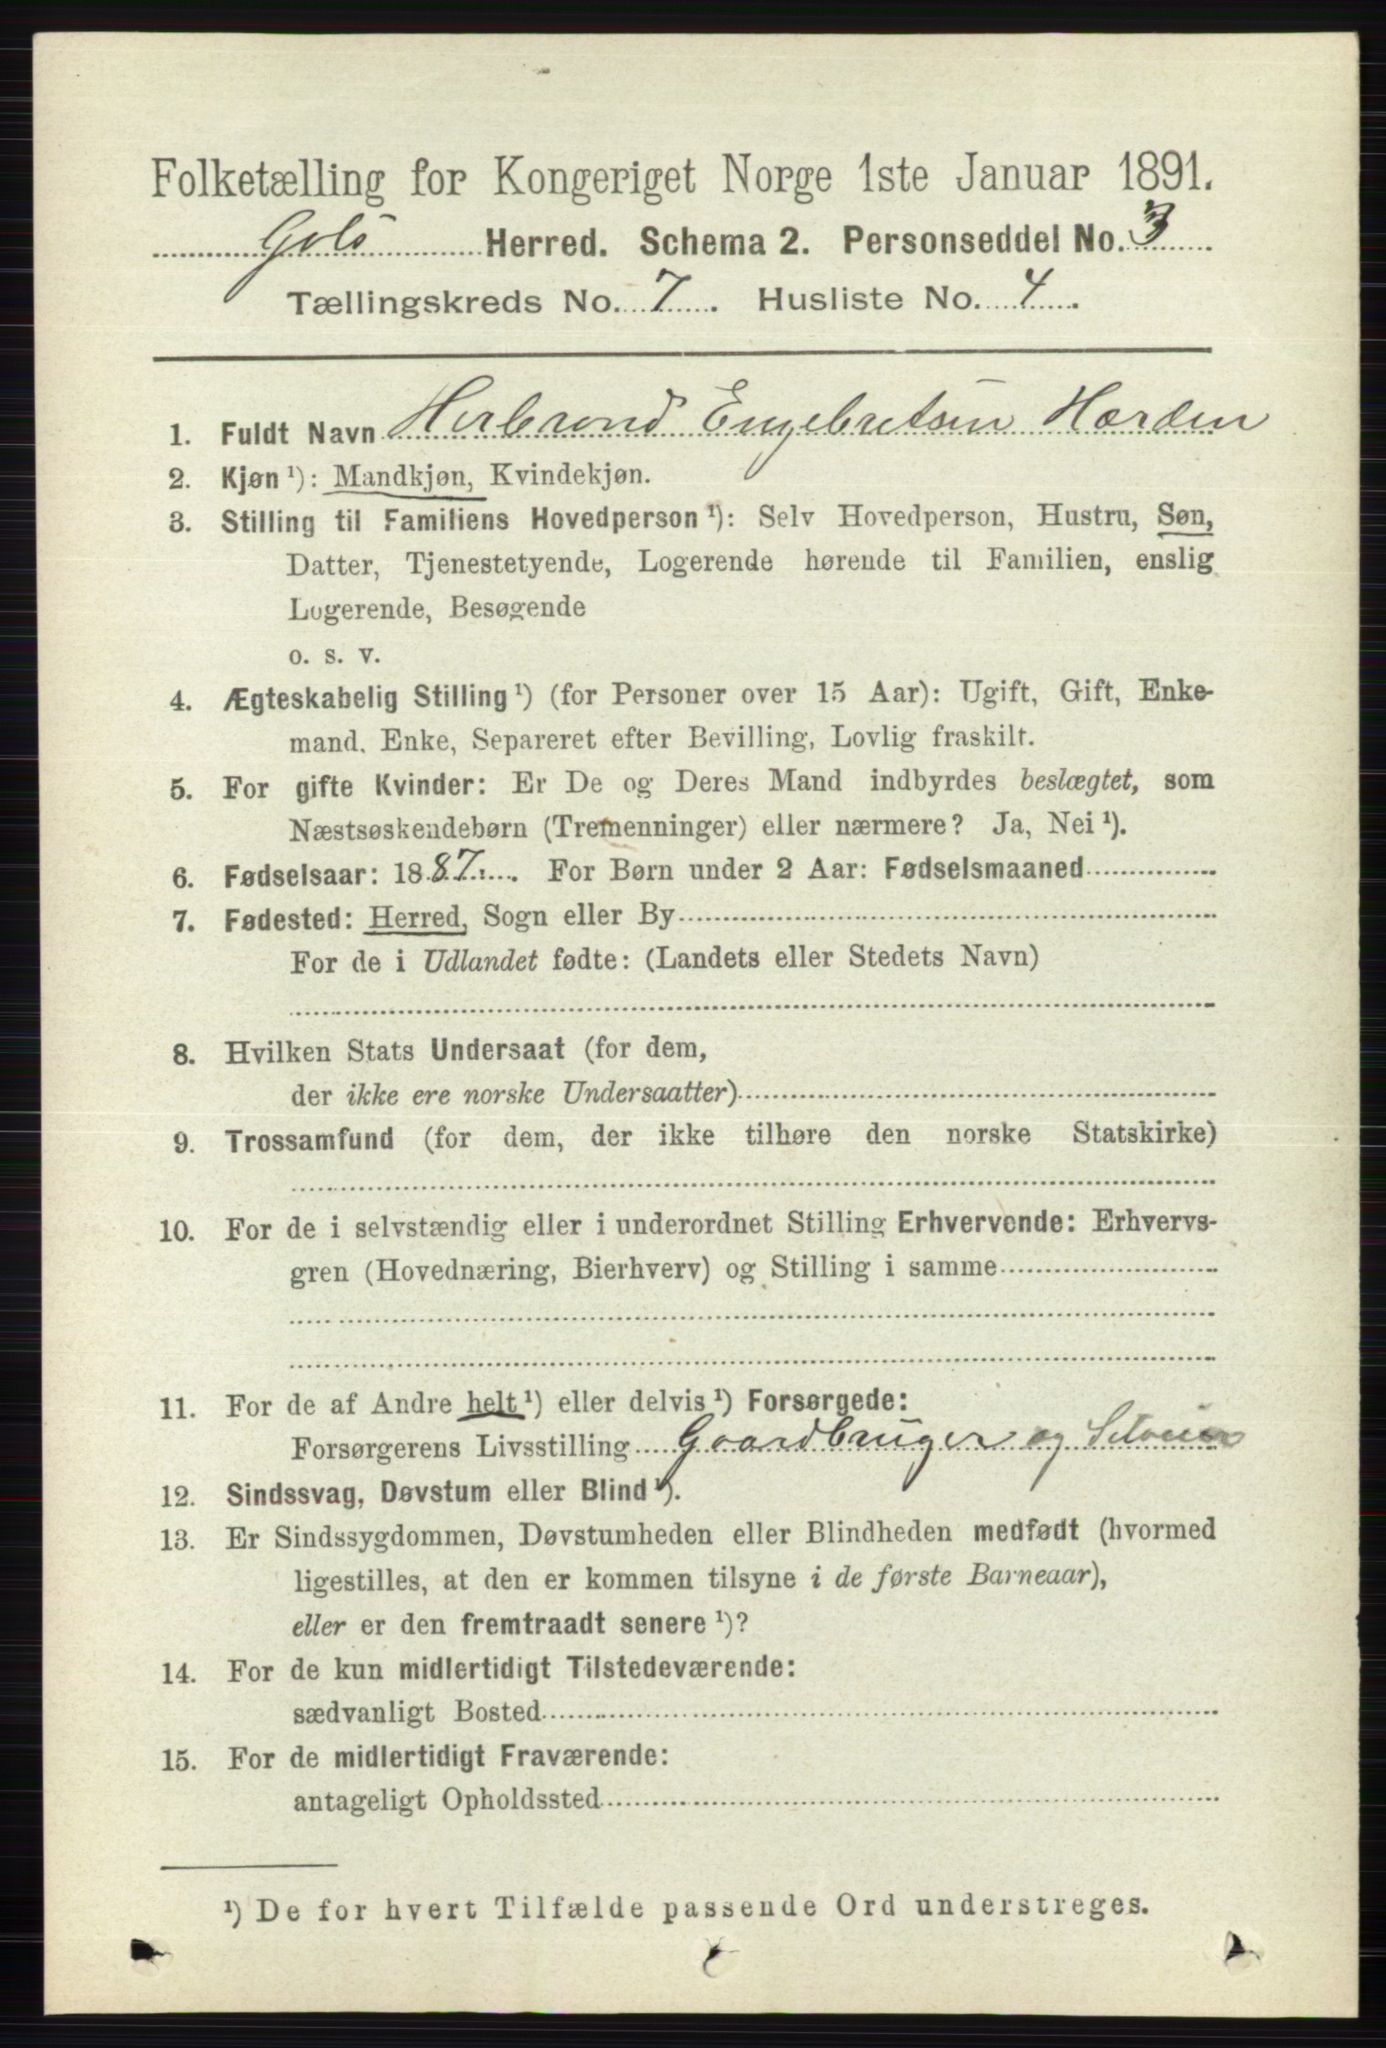 Folketælling for Kongeriget Norge 1ste Januar 1891.
Gols Herred. Schema 2. Personseddel No. 3
Tællingskreds No. 7. Husliste No. 4.
1. Fuldt Navn Herbrand Engebretsen Hørden
2. Kjøn ¹): Mandkjøn, Kvindekjøn.
3. Stilling til Familiens Hovedperson ¹): Selv Hovedperson, Hustru, Søn,
Datter, Tjenestetyende, Logerende hørende til Familien, enslig
Logerende, Besøgende
o. s. v.
4. Ægteskabelig Stilling ¹) (for Personer over 15 Aar): Ugift, Gift, Enke-
mand, Enke, Separeret efter Bevilling, Lovlig fraskilt.
5. For gifte Kvinder: Er De og Deres Mand indbyrdes beslægtet, som
Næstsøskendebørn (Tremenninger) eller nærmere? Ja, Nei ¹).
6. Fødselsaar: 1887. For Børn under 2 Aar: Fødselsmaaned
7. Fødested: Herred, Sogn eller By
For de i Udlandet fødte: (Landets eller Stedets Navn)
8. Hvilken Stats Undersaat (for dem,
der ikke ere norske Undersaatter)
9. Trossamfund (for dem, der ikke tilhøre den norske Statskirke)
10. For de i selvstændig eller i underordnet Stilling Erhvervende: Erhvervs-
gren (Hovednæring, Bierhverv) og Stilling i samme
11. For de af Andre helt ¹) eller delvis ¹) Forsørgede:
Forsørgerens Livsstilling Gaardbruger og Selveier
12. Sindssvag, Døvstum eller Blind ¹).
13. Er Sindssygdommen, Døvstumheden eller Blindheden medfødt (hvormed
ligestilles, at den er kommen tilsyne i de første Barneaar),
eller er den fremtraadt senere ¹)?
14. For de kun midlertidigt Tilstedeværende:
sædvanligt Bosted
15. For de midlertidigt Fraværende:
antageligt Opholdssted
¹) De for hvert Tilfælde passende Ord understreges.